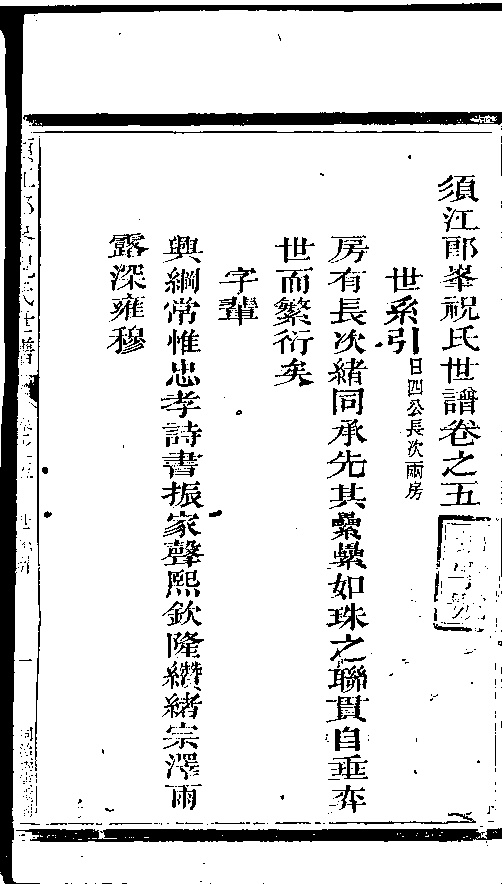 須江郎峯祝氏世譜卷之五
世系引日四公長次兩房
房有長次緒同承先其纍纍如珠之聯貫自垂弈
世而繁衍矣
字輩
興綱常惟忠孝詩書振家聲熙欽隆纘緒宗澤雨
露深雍穆